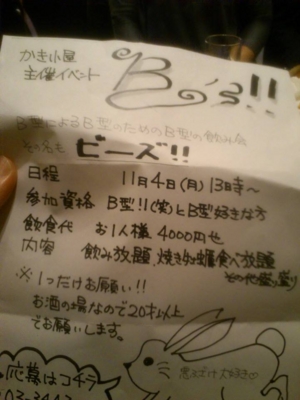 かき小屋
主催イベント
B's!!
B型によるB型のためのB型の飲み会
その名も ビーズ!!
日程 11月4日(月)13時〜
参加資格 B型!!(笑)とB型好きな方
飲食代 お1人様 4000円也
内容 飲み放題、焼き牡蠣食べ放題
その他盛り盛り
※1つだけお願い!!
お酒の場なので20才以上
でお願いします。
悪ふざけ大好き♡
応募はコチラ